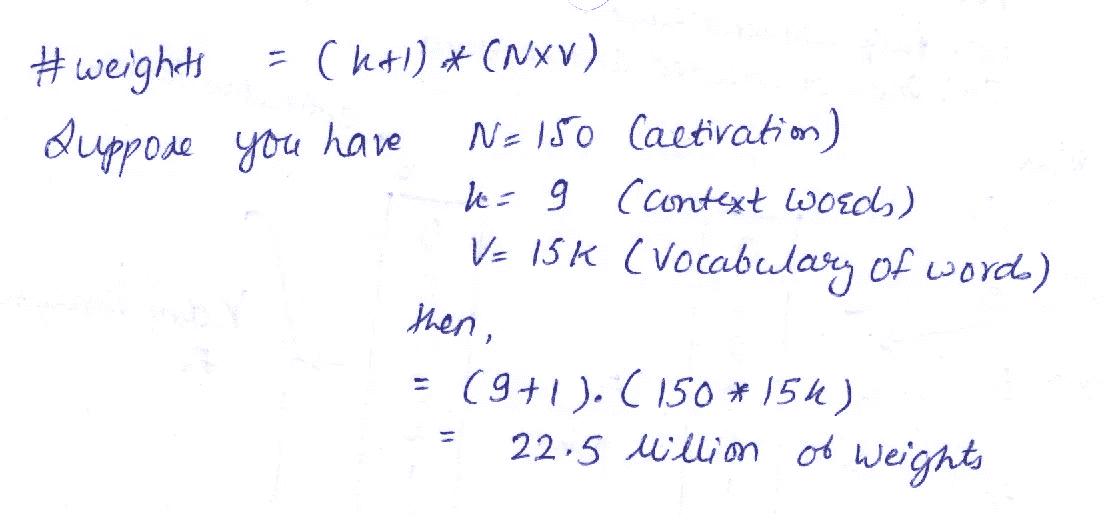 #weights = (k+1) * (N×V)
Suppose you have N= 150 (activation)
k= 9 (context words)
V= 15K (Vocabulary of words)
then,
= (9+1). (150 * 15k)
= 22.5 Million of weights